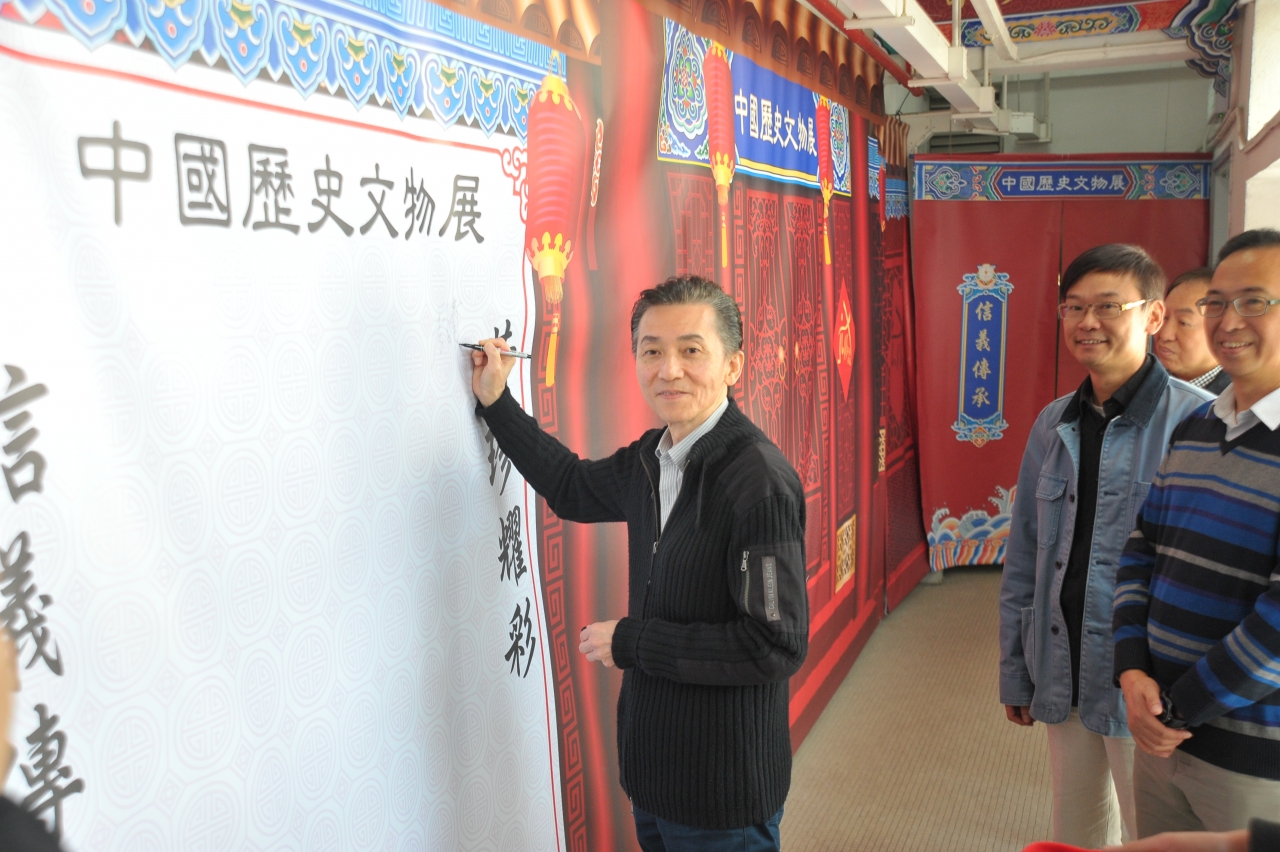 中國歷史文物展
珍耀彩
信義傳
中國歷史文物展
中國歷史文物展
信義傳承
CALVIN KLEIN JEANS